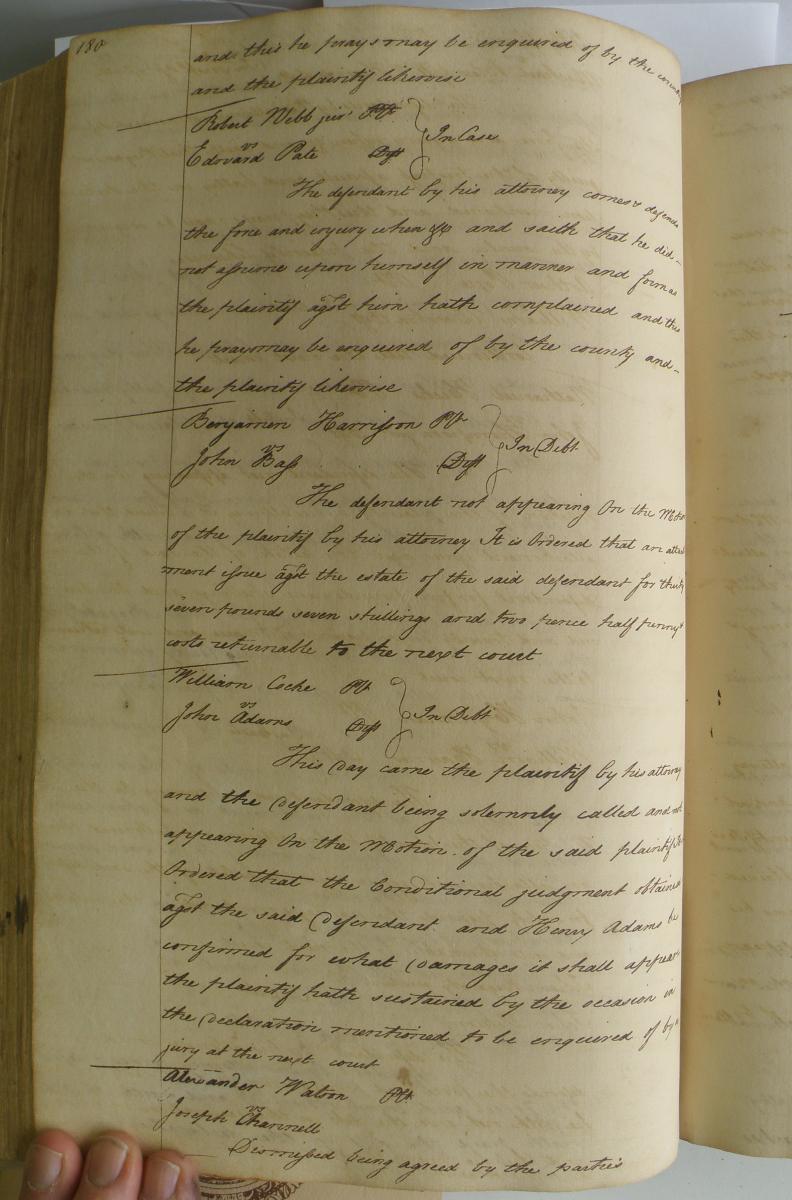 180
and this he prays may be enquired of by the county
and the plaintif likewise
Robert Webb junr Plt
vs In Case
Edward Pate Deft
The defendant by his attorney comes & defends
the force and injury when &c and saith that he did
not assume upon himself in manner and form as
the plaintif agst him hath complained and this
he prays may be enquired of by the county and
the plaintif likewise
Benjamin Harrison Plt
vs In Debt
John Bass Deft
The defendant not appearing On the Motion
of the plaintif by his attorney It is Ordered that an attach
ment issue agst the estate of the said defendant for thirty
seven pounds seven shillings and two pence half penny &
costs returnable to the next court
William Cocke Plt
vs In Debt
John Adams Deft
This Day came the plaintif by his attorney
and the Defendant being solemnly called and not
appearing On the Motion of the said plaintif Its
Ordered that the Conditional judgment obtained
agst the said Defendant and Henry Adams be
confirmed for what Damages it shall appear
the plaintif hath sustained by the occasion in
the Declaration mentioned to be enquired of by a
jury at the next court
Alexander Watson Plt
vs
Joseph Charmell
Dismissed being agreed by the parties